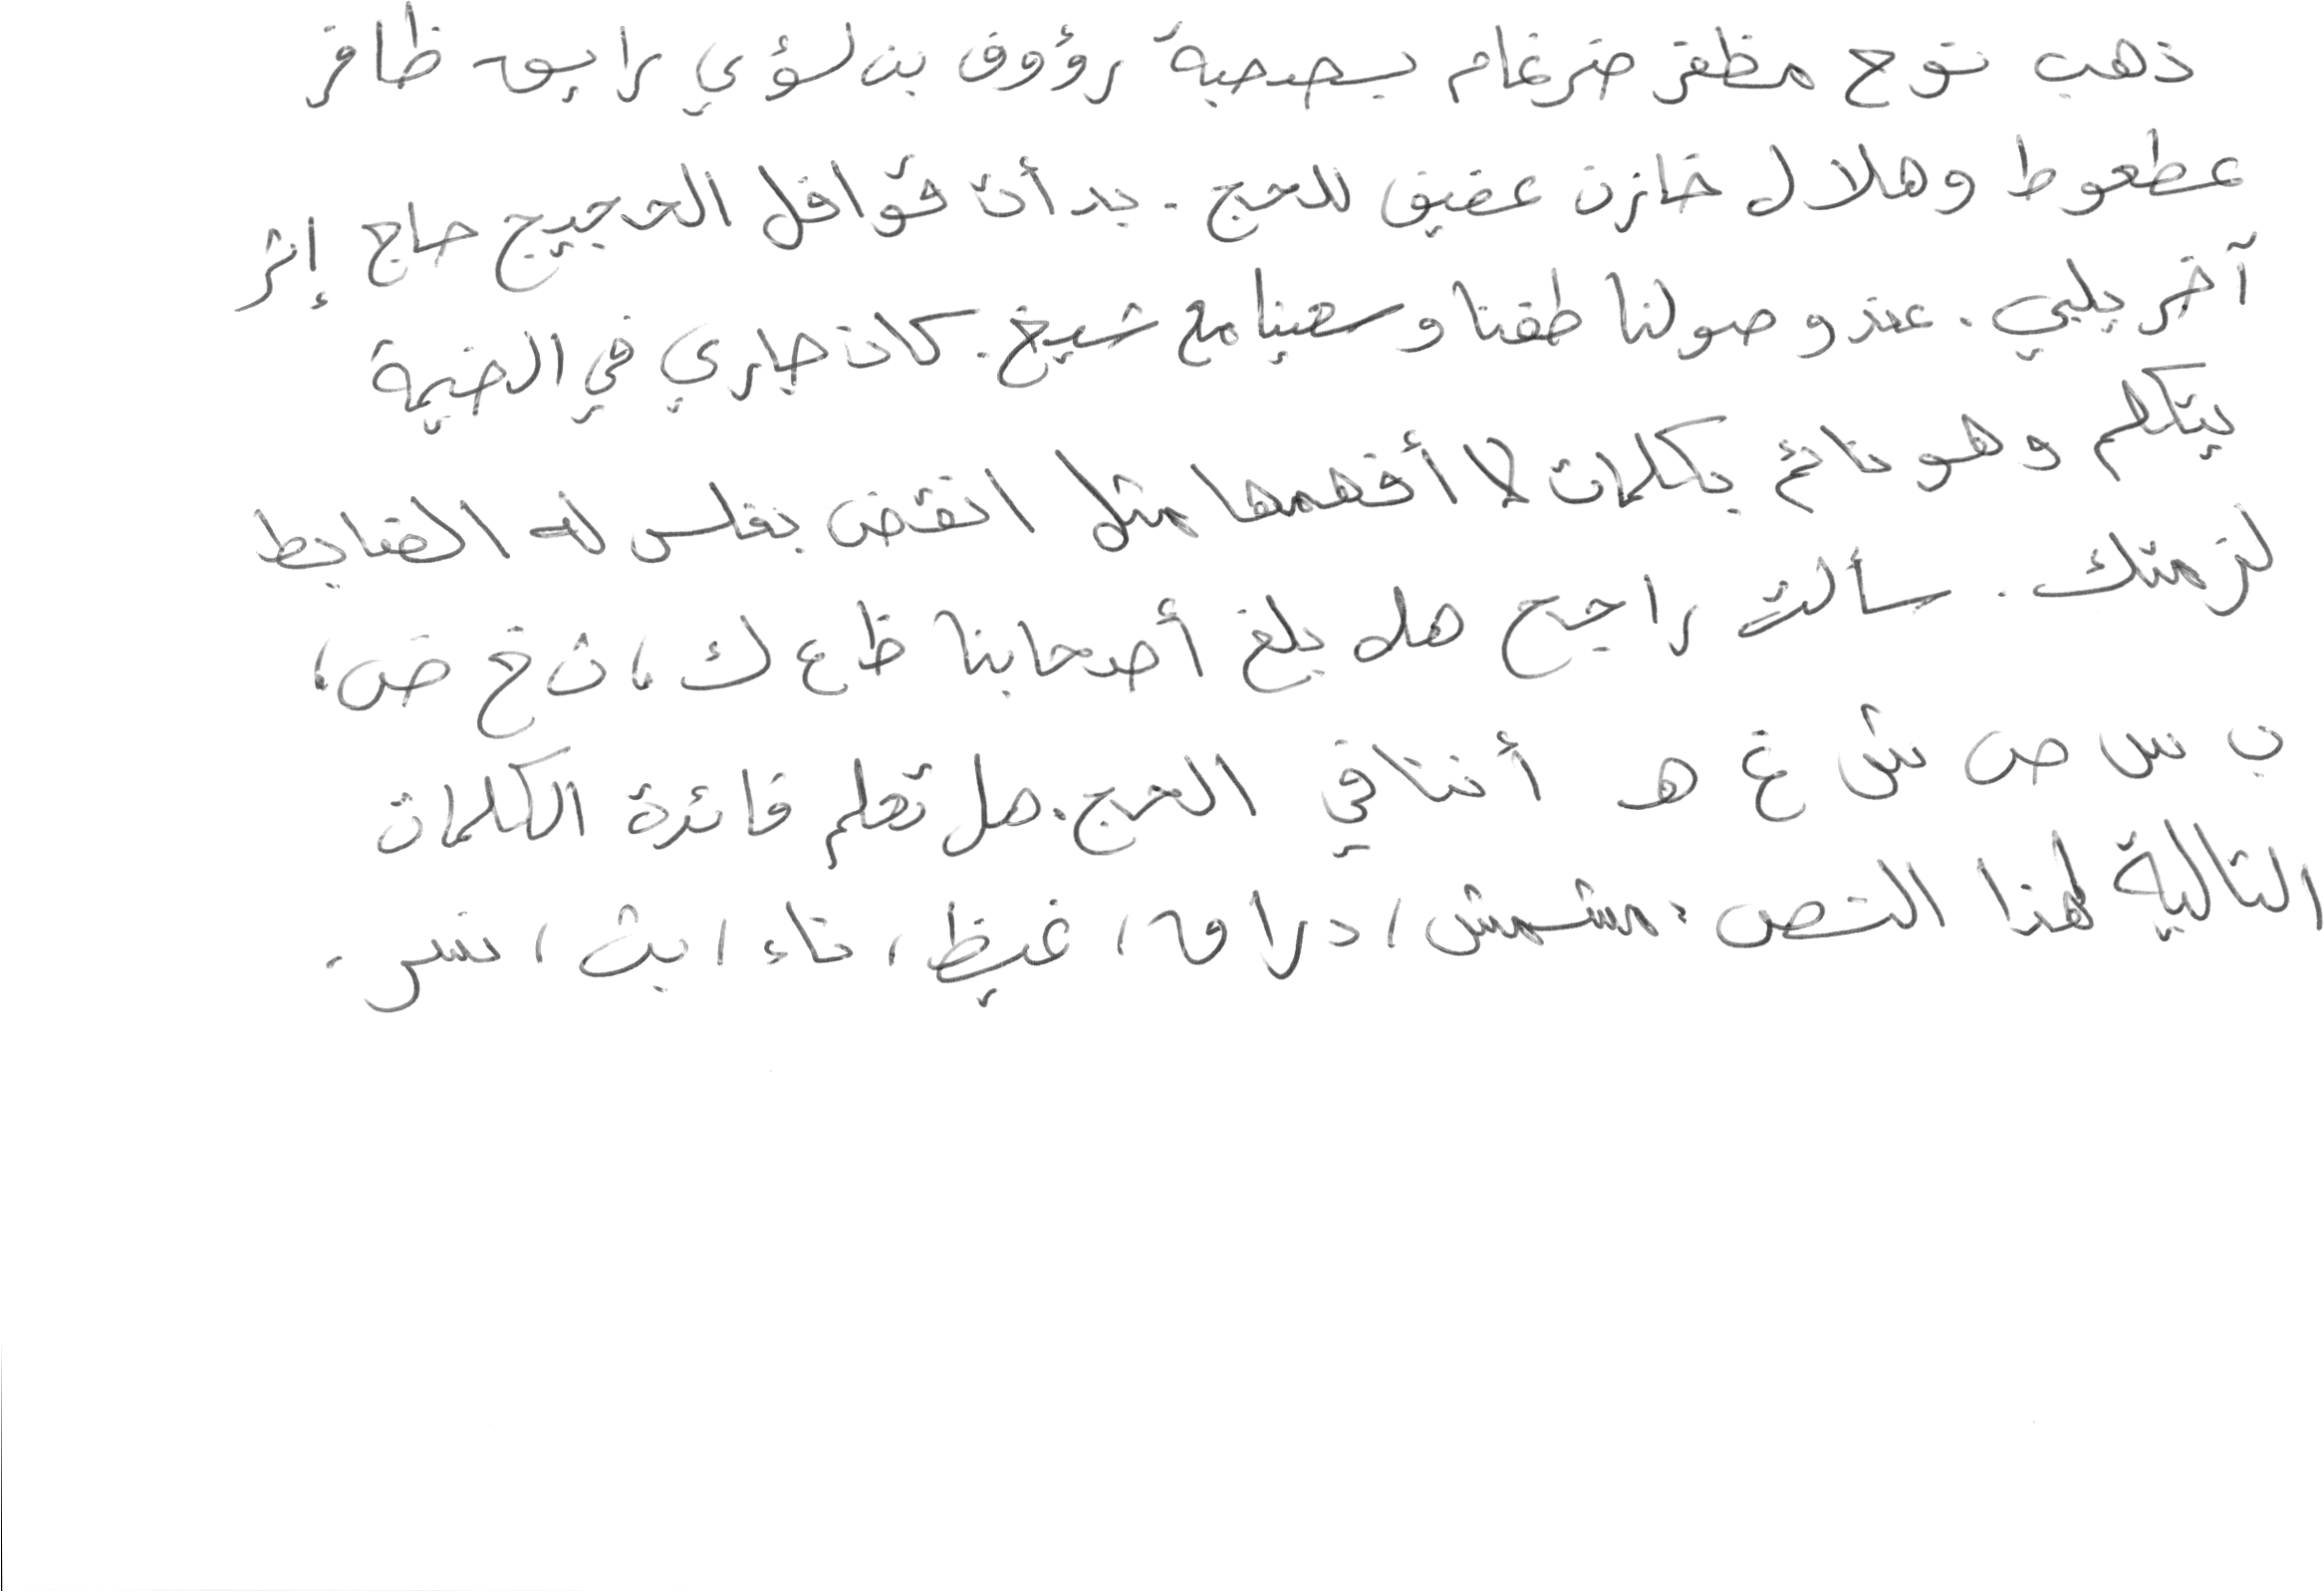 ذهب نوح مظفر ضرغام بصحبة رؤوف بن لؤي رايق ظافر
عطعوط وهلال خازن عفيف للحج . بدأت قوافل الحجيج حاج إثر
آخر يلبي . عند وصولنا طفنا وسعينا مع شيخ . كان جاري في الخيمة
يتكلم وهو نائم بكلمات لا أفهمها مثل انقض بغلس له الضابط
لزمتك . سألت راجح هل بلغ أصحابنا ظ ع ك ، ث خ ض ،
ب س ص ش غ هـ أننا في الحج . هل تعلم فائدة الكلمات
التالية لهذا النص : مشمش ، دراق ، غيظ ، تاء ، بث ، نسر .